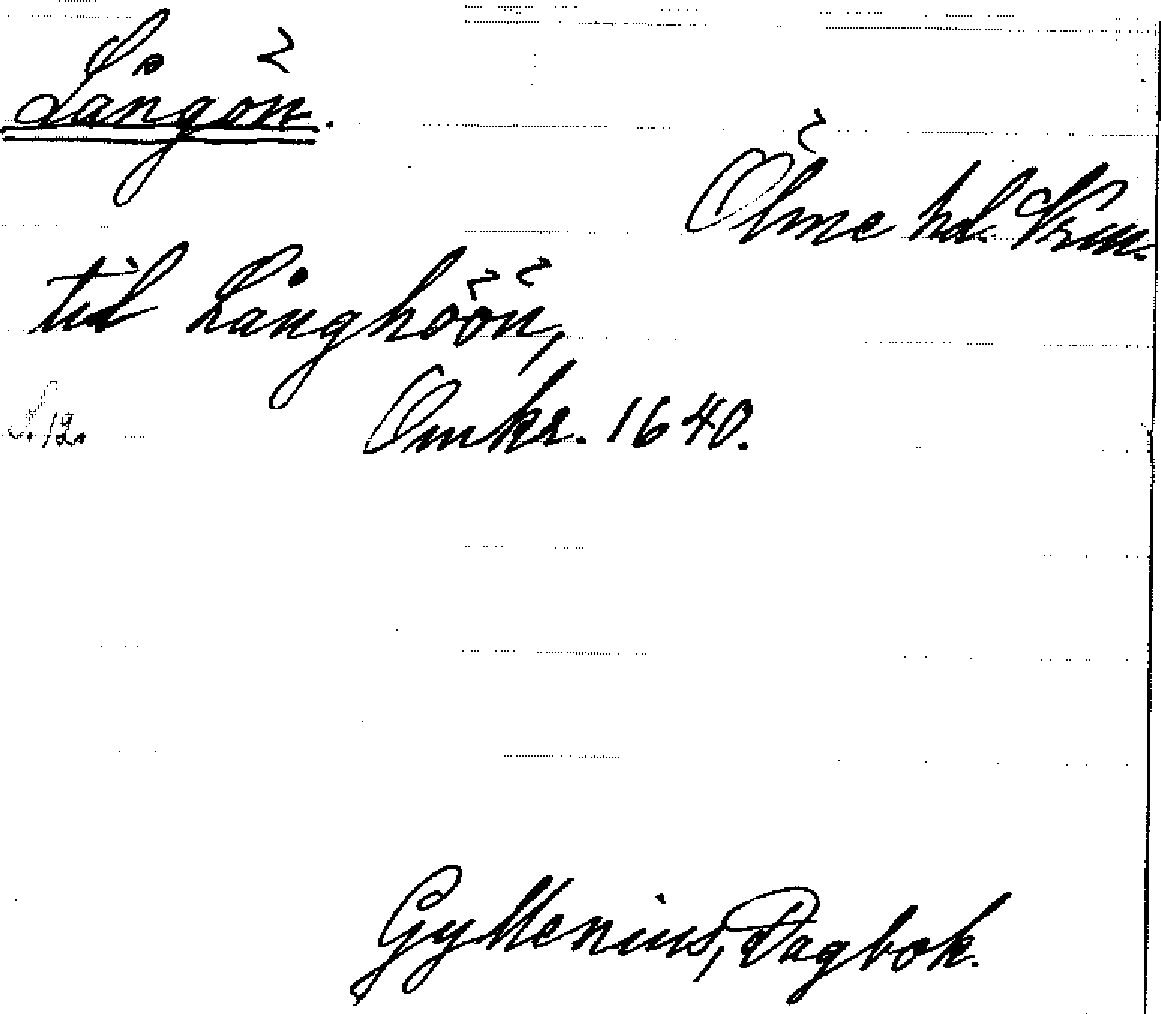 Långön.
Ölme hd. Vrm.
till Långhöön,
S. 12. Omkr. 1640.
Gyllenius, Dagbok.